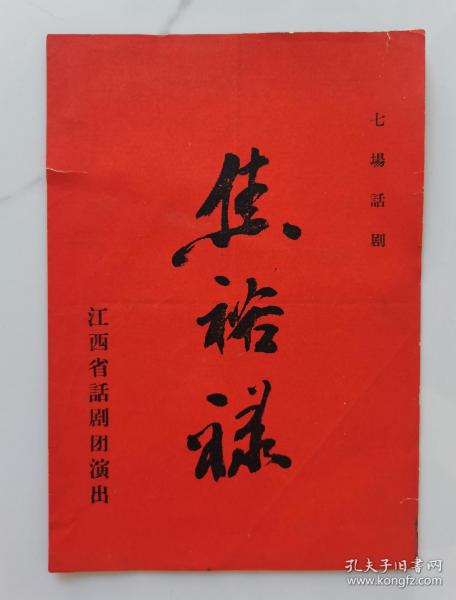 七場話剧
焦裕禄
江西省話剧团演出
孔夫子旧书网
www.kongfz.com